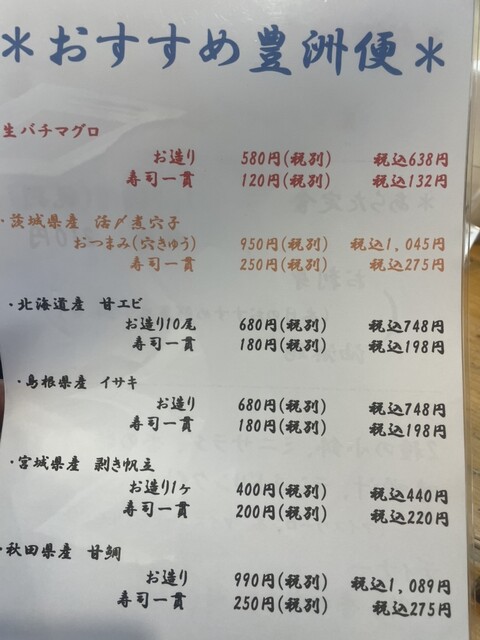 ＊おすすめ豊洲便＊
生バチマグロ
お造り 580円(税別) 税込638円
寿司一貫 120円(税別) 税込132円
・茨城県産 活〆煮穴子
おつまみ(穴きゅう) 950円(税別) 税込1,045円
寿司一貫 250円(税別) 税込275円
・北海道産 甘エビ
お造り10尾 680円(税別) 税込748円
寿司一貫 180円(税別) 税込198円
・島根県産 イサキ
お造り 680円(税別) 税込748円
寿司一貫 180円(税別) 税込198円
・宮城県産 剥き帆立
お造り1ヶ 400円(税別) 税込440円
寿司一貫 200円(税別) 税込220円
・秋田県産 甘鯛
お造り 990円(税別) 税込1,089円
寿司一貫 250円(税別) 税込275円